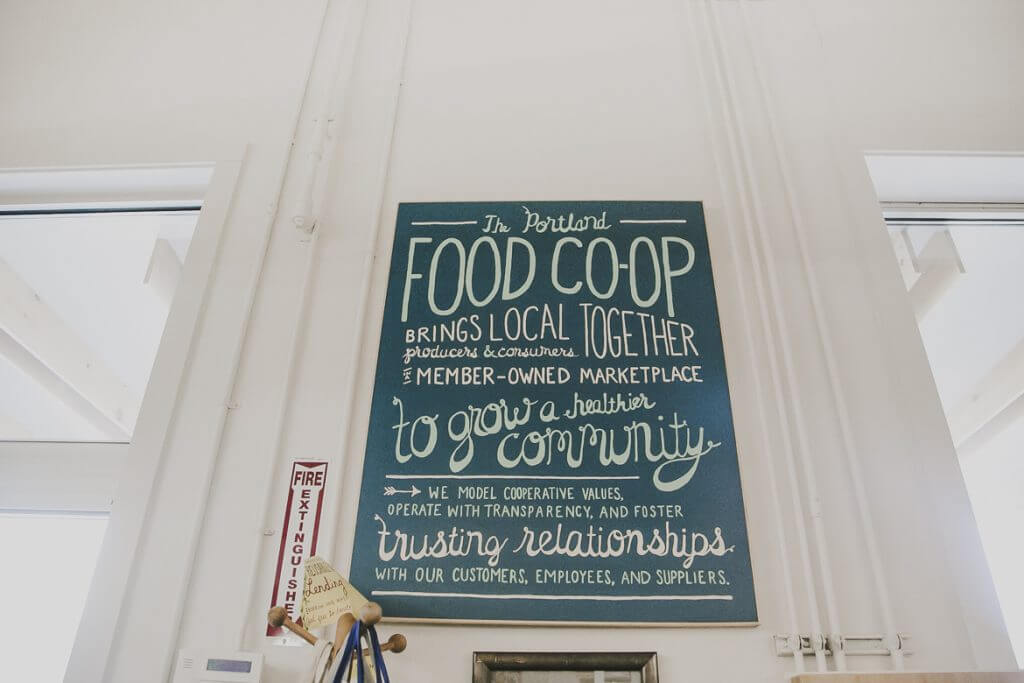 The Portland
FOOD CO-OP
BRINGS LOCAL TOGETHER
producers & consumers
MEMBER-OWNED MARKETPLACE
to grow a healthier
community.
WE MODEL COOPERATIVE VALUES,
OPERATE WITH TRANSPARENCY, AND FOSTER
trusting relationships
WITH OUR CUSTOMERS, EMPLOYEES, AND SUPPLIERS.
FIRE
EXTINGUISHE
Lending